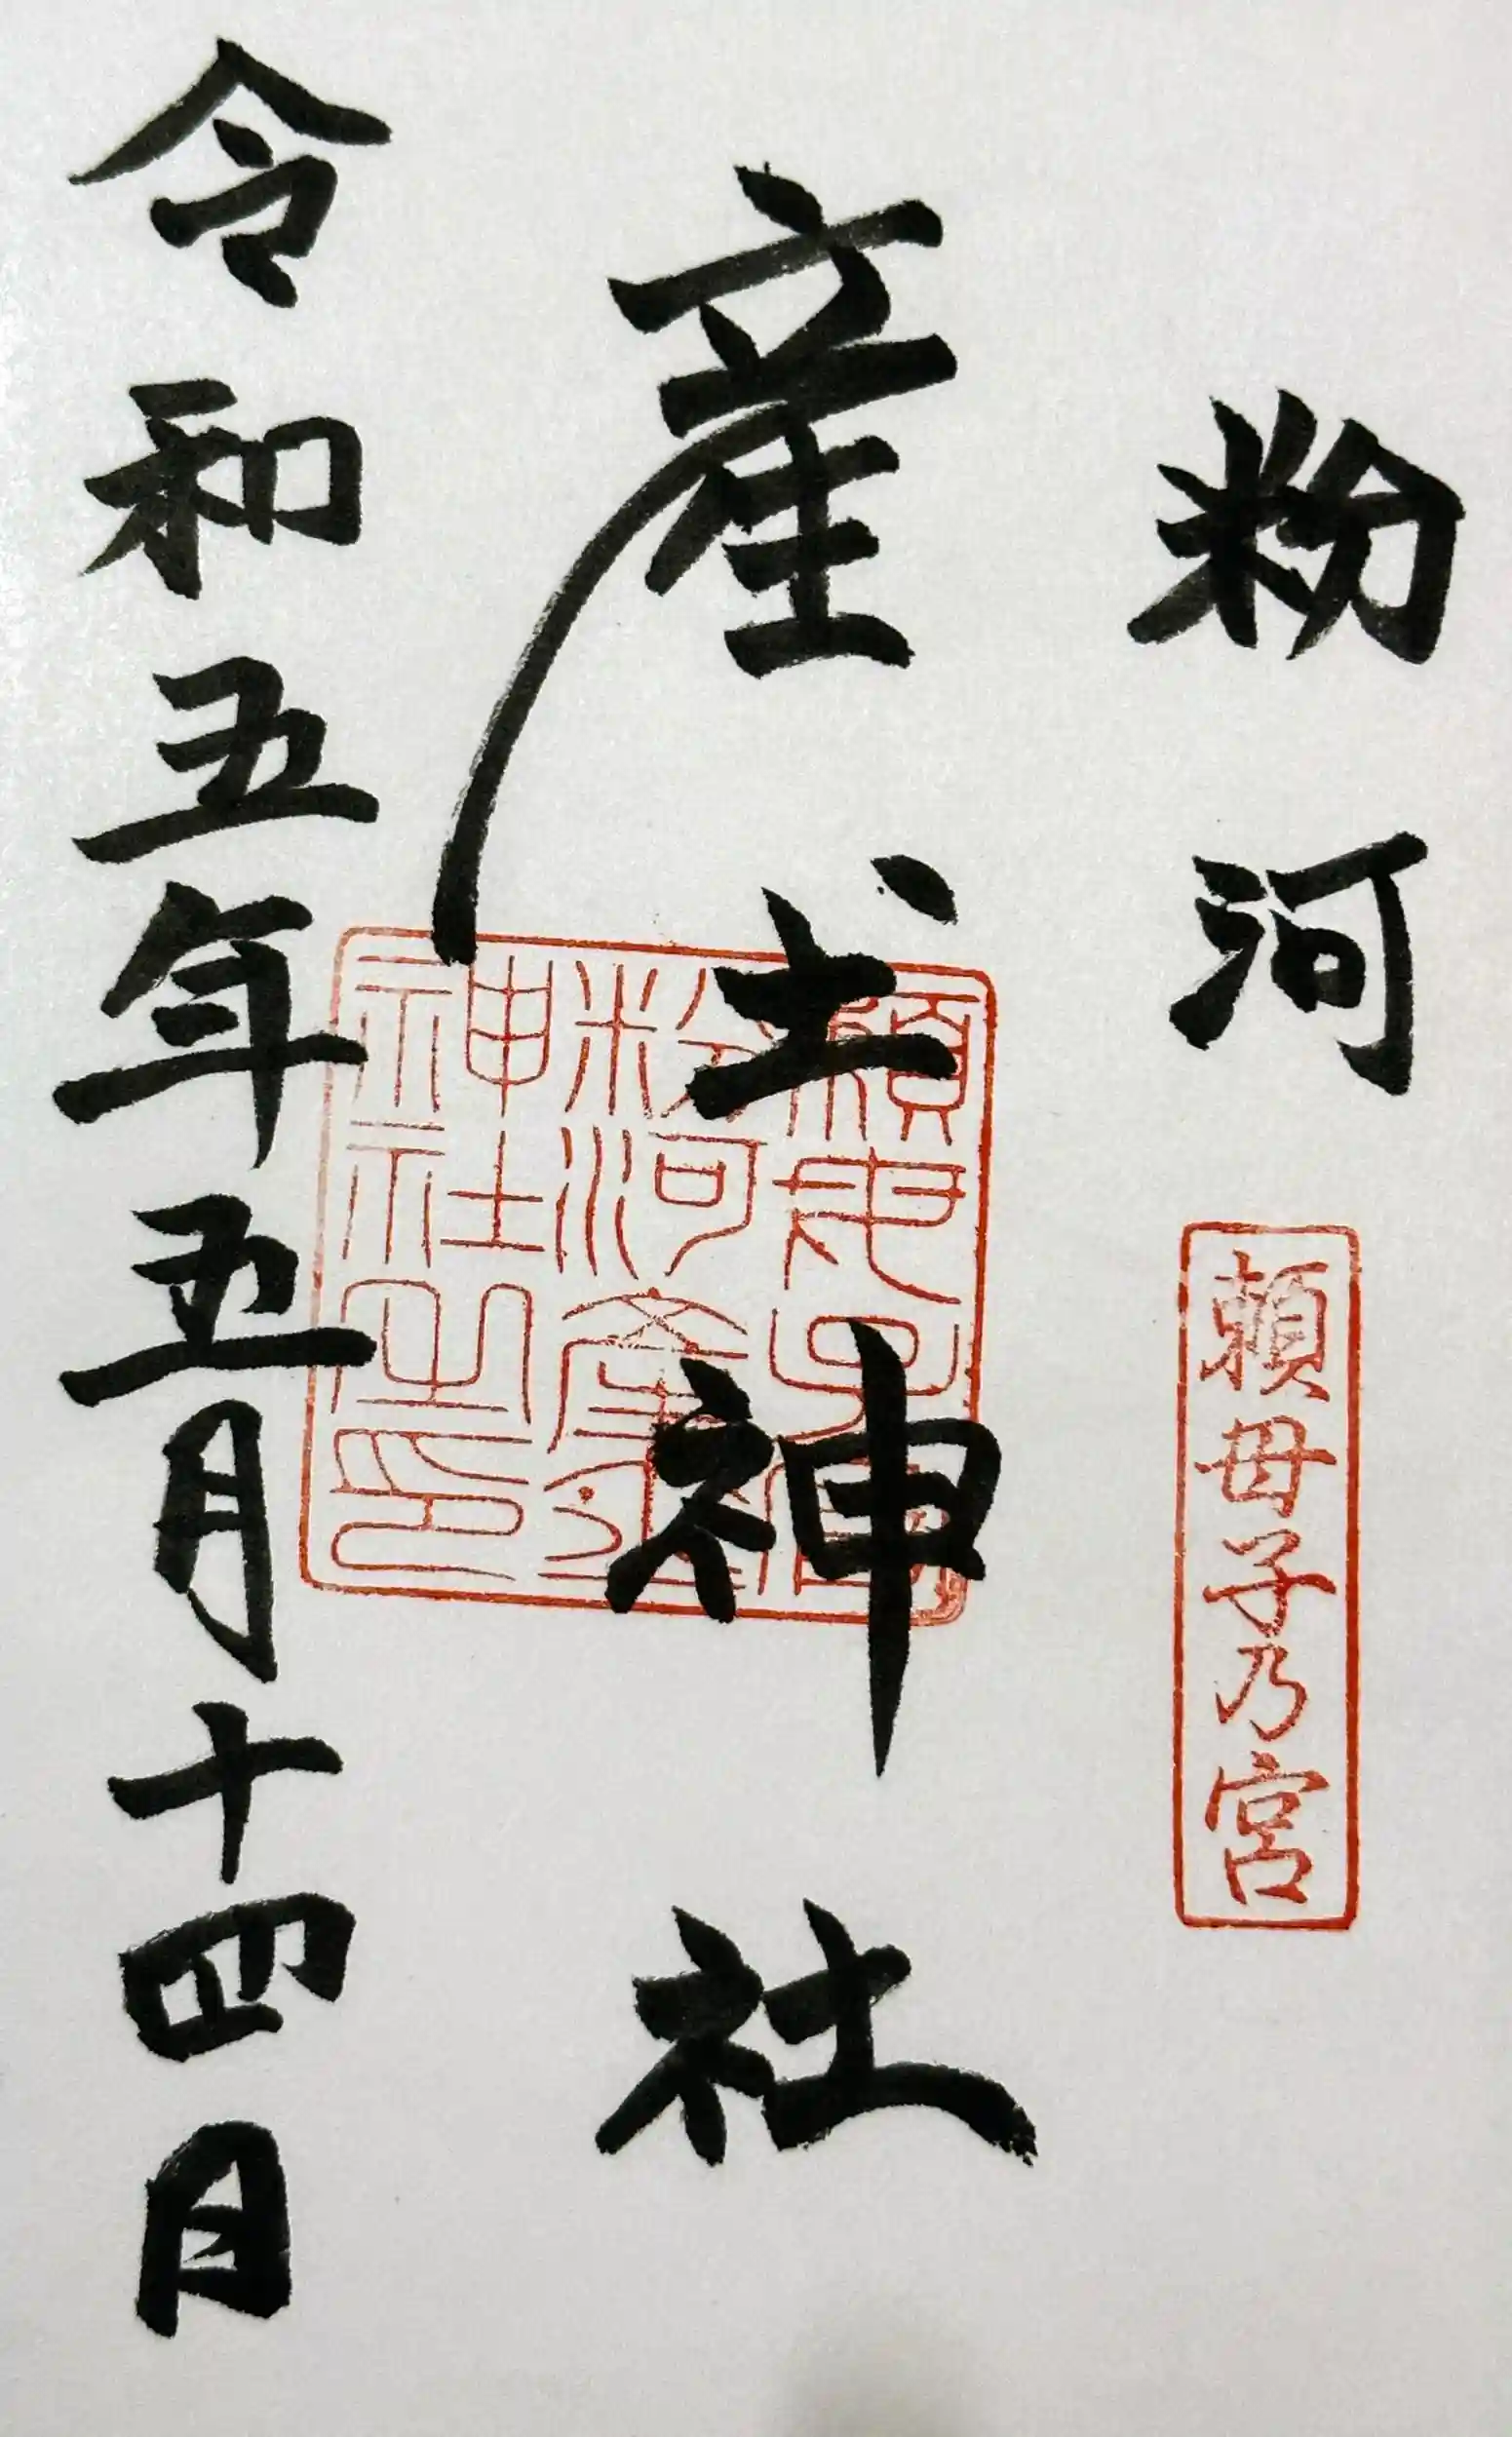 粉河
頼母子乃宮
産土神社
頼母子宮
粉河産土
神社之印
令和五年五月十四日